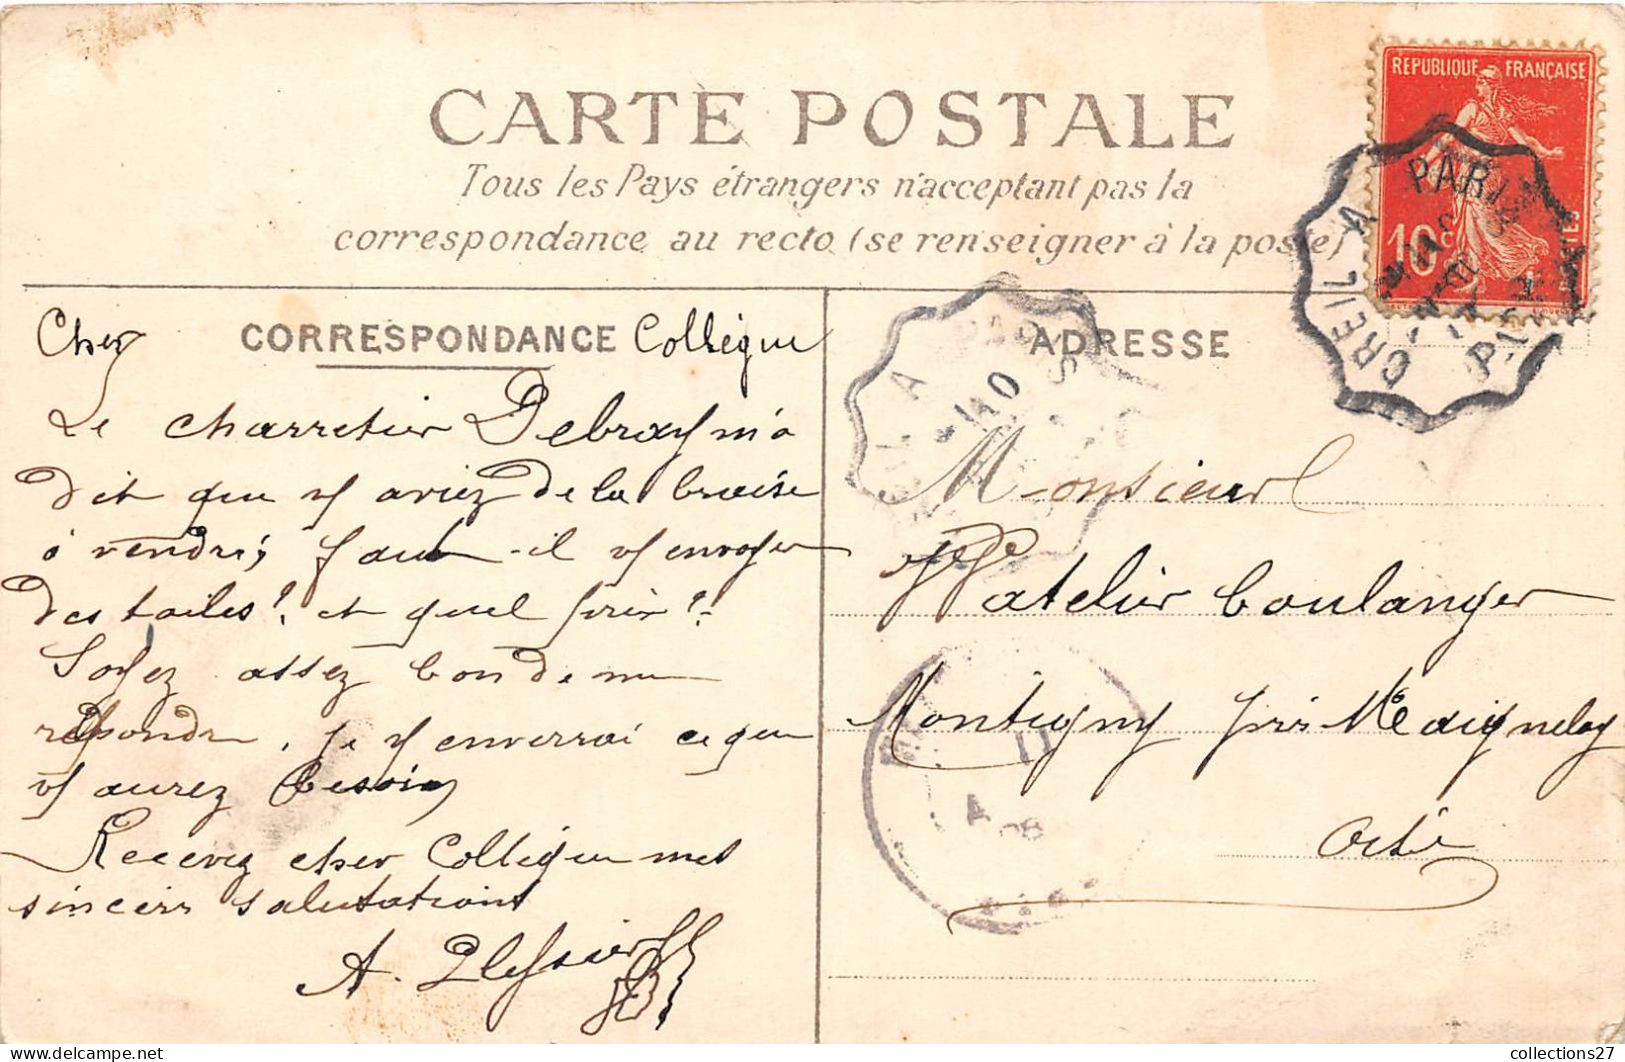 CARTE POSTALE
Tous les Pays étrangers n'acceptant pas la
correspondance au recto (se renseigner à la poste)
RÉPUBLIQUE FRANÇAISE
10 c
CREIL A PARIS
CORRESPONDANCE
Cher Collègue
Le charretier Debray m'a
dit que vs aviez de la braise
à vendre, faut-il vs envoyer
des toiles? et quel prix?
Soyez assez bon de me
répondre, je vs enverrai ce que
vs aurez besoin
Recevez cher Collègue mes
sincères salutations
A. Plessier
ADRESSE
Monsieur
atelier boulanger
Montigny près Maignelay
Oise
collections27